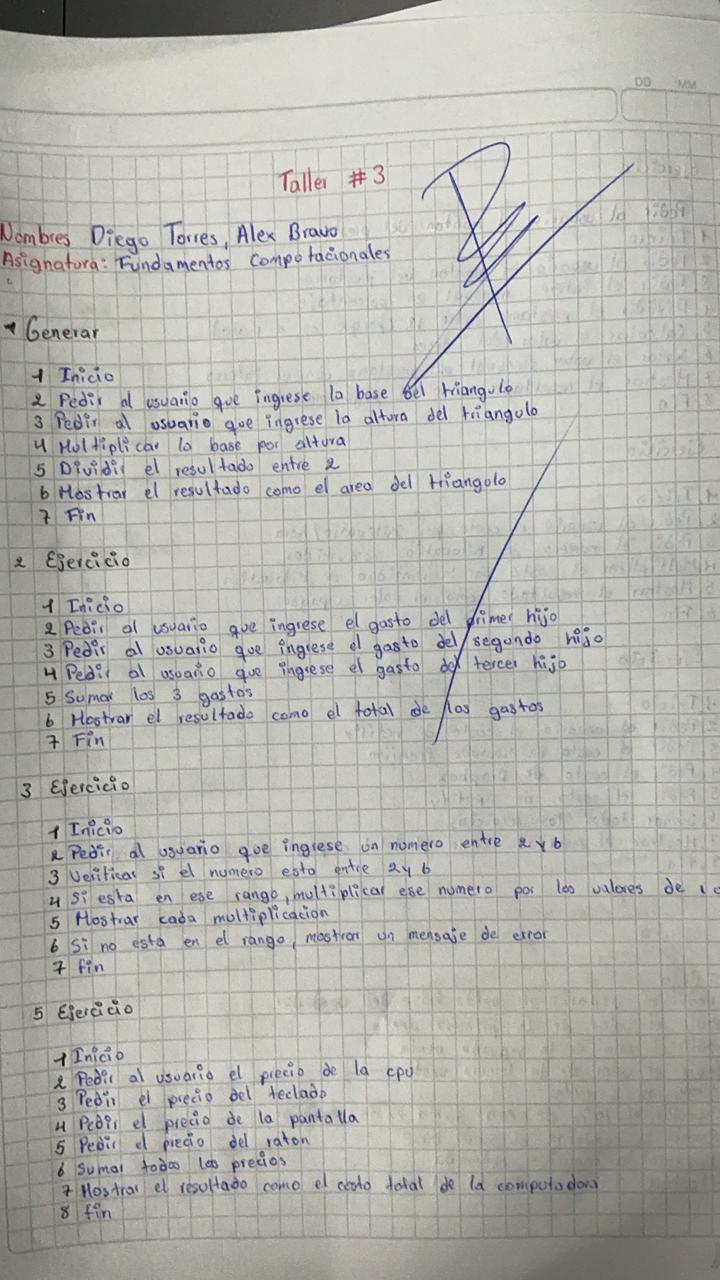 DD MM
Taller #3
Nombres Diego Torres, Alex Bravo
Asignatura: Fundamentos Compotacionales
1 Generar
1 Inicio
2 Pedir al usuario que ingrese la base del triangulo
3 Pedir al usuario que ingrese la altura del triangulo
4 Multiplicar la base por altura
5 Dividir el resultado entre 2
6 Mostrar el resultado como el area del triangulo
7 Fin
2 Ejercicio
1 Inicio
2 Pedir al usuario que ingrese el gasto del primer hijo
3 Pedir al usuario que ingrese el gasto del segundo hijo
4 Pedir al usuario que ingrese el gasto del tercer hijo
5 Sumar los 3 gastos
6 Mostrar el resultado como el total de los gastos
7 Fin
3 Ejercicio
1 Inicio
2 Pedir al usuario que ingrese un numero entre 2 y 6
3 Verificar si el numero esta entre 2 y 6
4 Si esta en ese rango, multiplicar ese numero por los valores de
5 Mostrar cada multiplicacion
6 Si no esta en el rango, mostrar un mensaje de error
7 fin
5 Ejercicio
1 Inicio
2 Pedir al usuario el precio de la cpu
3 Pedir el precio del teclado
4 Pedir el precio de la pantalla
5 Pedir el precio del raton
6 Sumar todos los precios
7 Mostrar el resultado como el costo total de la computadora
8 fin